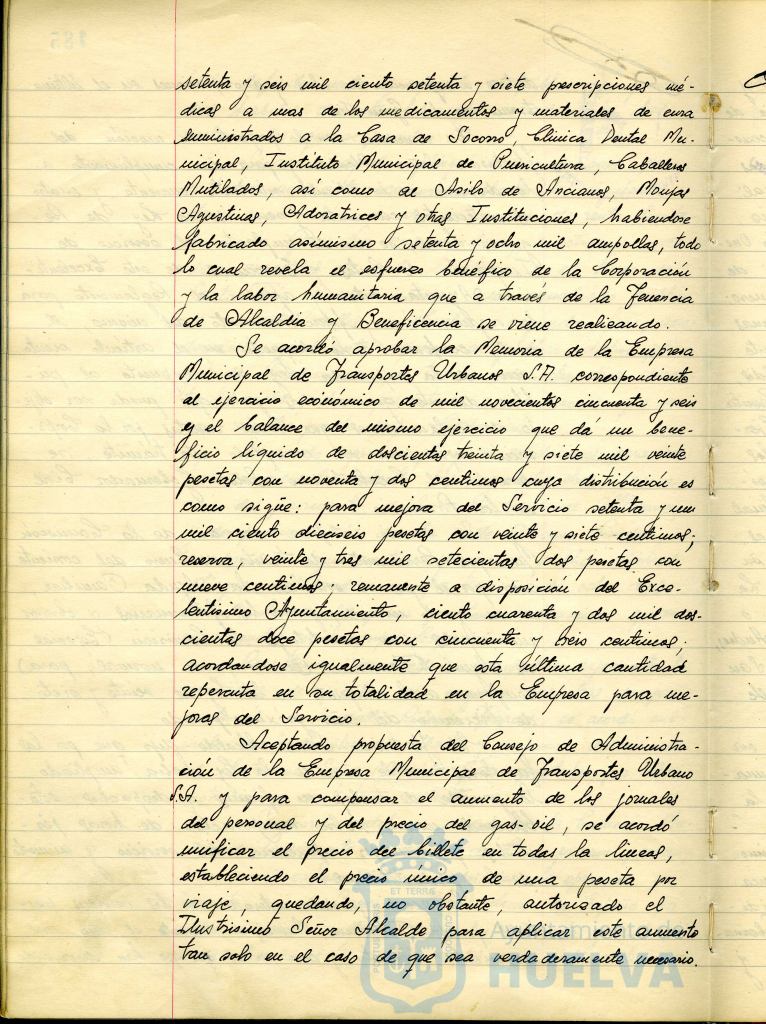 setenta y seis mil ciento setenta y siete prescripciones mé-
dicas a mas de los medicamentos y materiales de cura
suministrados a la Casa de Socorro, Clínica Dental Mu-
nicipal, Instituto Municipal de Puericultura, Caballeros
Mutilados, así como al Asilo de Ancianos, Monjas
Agustinas, Adoratrices y otras Instituciones, habiendose
fabricado asímismo setenta y ocho mil ampollas, todo
lo cual revela el esfuerzo benéfico de la Corporación
y la labor humanitaria que a través de la Tenencia
de Alcaldia y Beneficencia se viene realizando.
Se acordó aprobar la Memoria de la Empresa
Municipal de Transportes Urbanos S.A. correspondiente
al ejercicio económico de mil novecientos cincuenta y seis
y el balance del mismo ejercicio que dá un bene-
ficio líquido de doscientas treinta y siete mil veinte
pesetas con noventa y dos centimos cuya distribución es
como sigüe: para mejora del Servicio setenta y un
mil ciento dieciseis pesetas con veinte y siete centimos;
reserva, veinte y tres mil setecientas dos pesetas con
nueve centimos; remanente a disposición del Exce-
lentisimo Ayuntamiento, ciento cuarenta y dos mil dos-
cientas doce pesetas con cincuenta y seis centimos;
acordandose igualmente que esta última cantidad
reperciuta en su totalidad en la Empresa para me-
joras del Servicio.
Aceptando propuesta del Consejo de Administra-
ción de la Empresa Municipal de Transportes Urbano
S.A. y para compensar el aumento de los jornales
del personal y del precio del gas-oil, se acordó
unificar el precio del billete en todas la lineas,
estableciendo el precio único de una peseta por
viaje, quedando, no obstante, autorizado el
Ilustrisimo Señor Alcalde para aplicar este aumento
tan solo en el caso de que sea verdaderamente necesario.
HUELVA